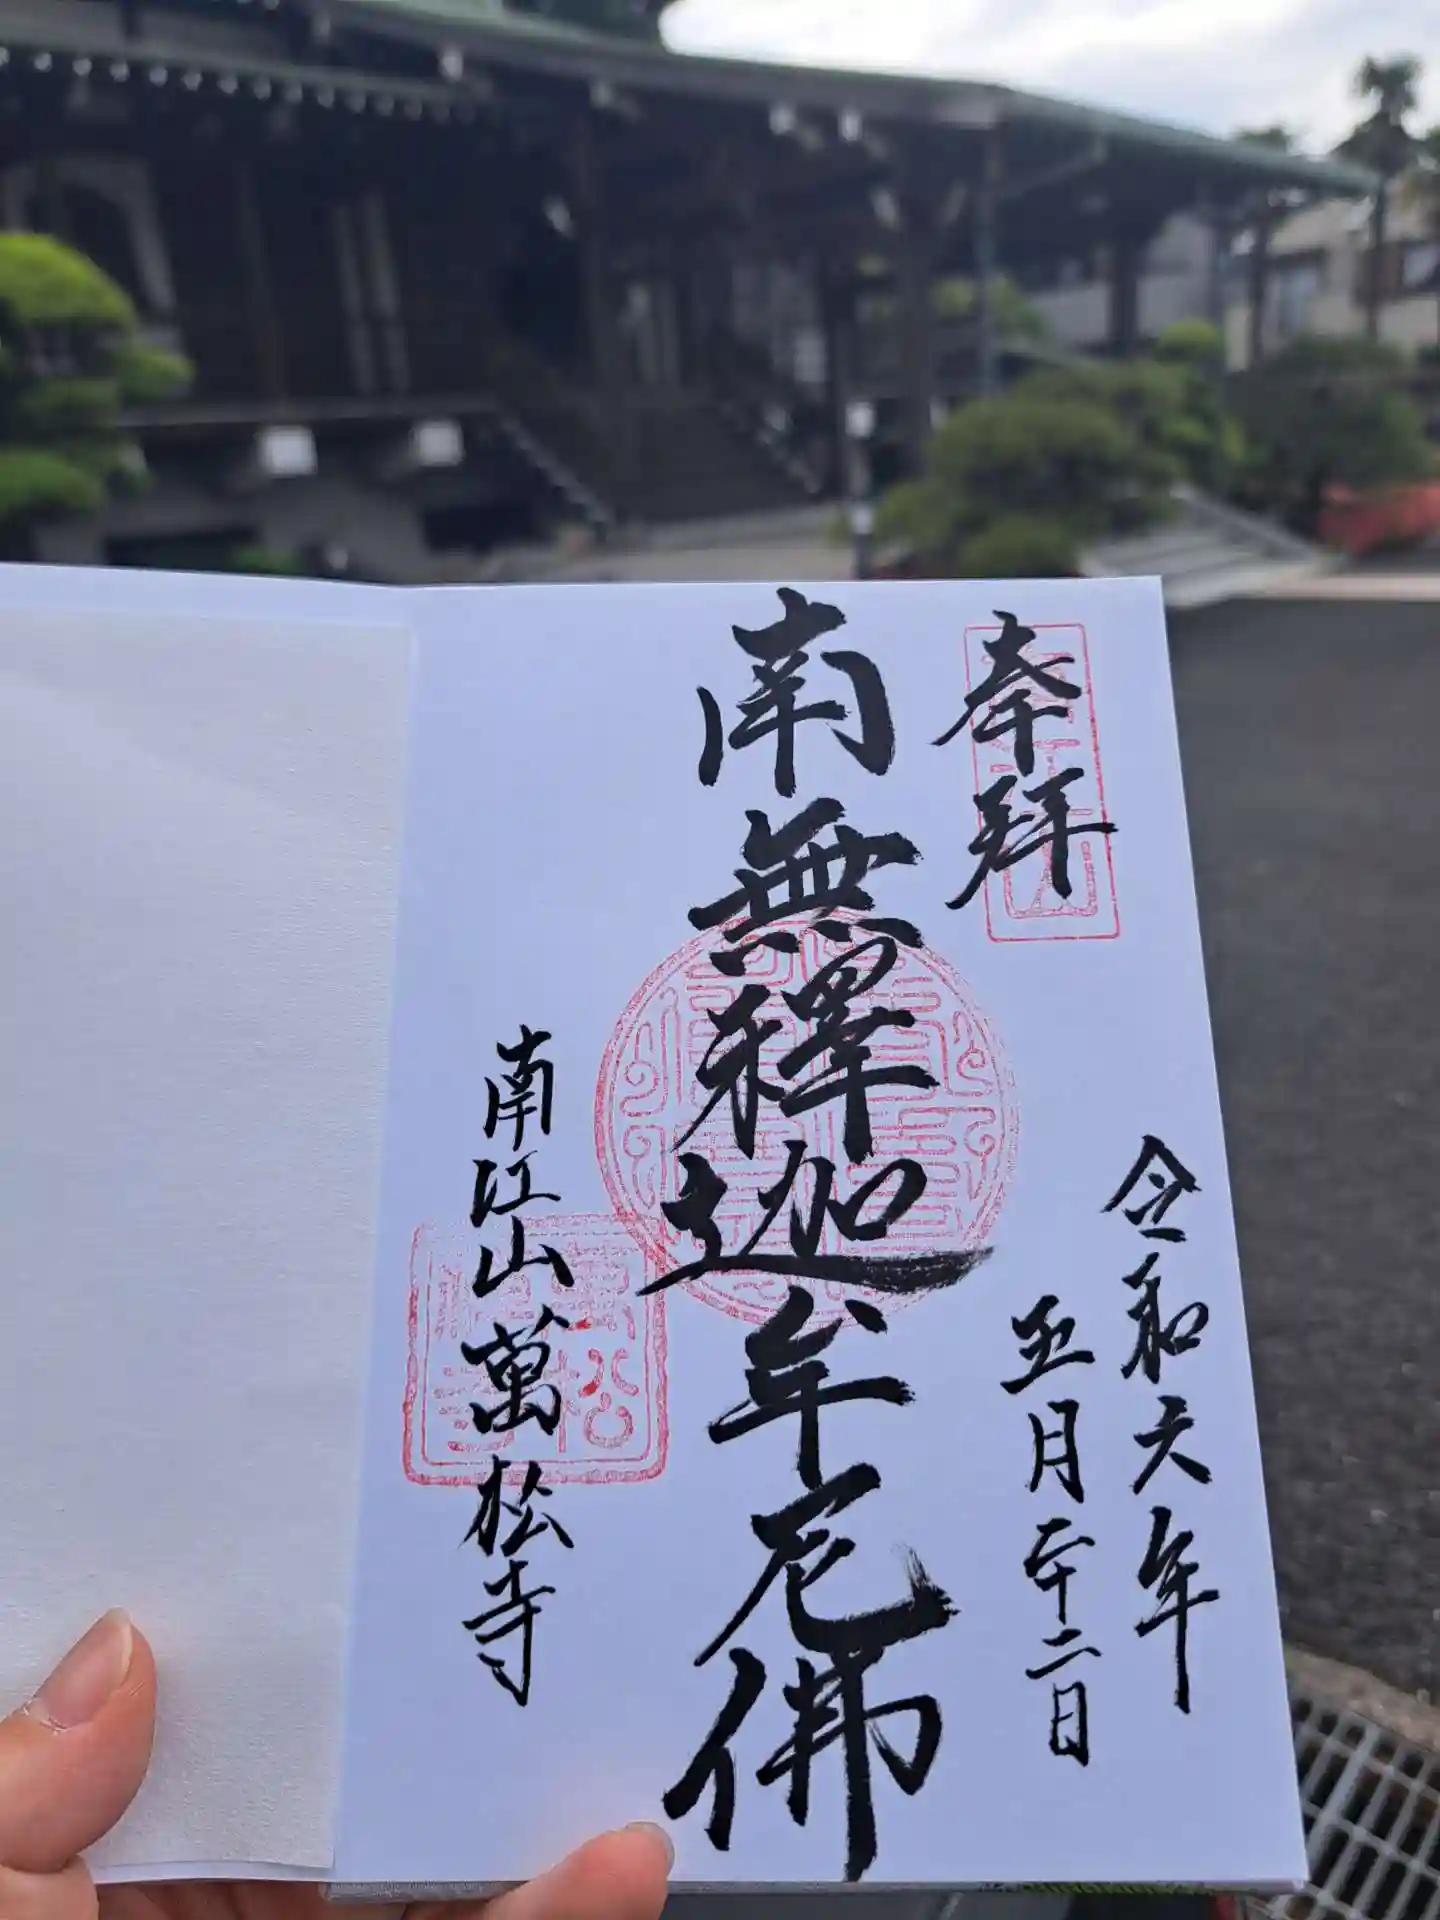 奉拝
令和六年
五月二十二日
南無釋迦牟尼佛
南江山萬松寺